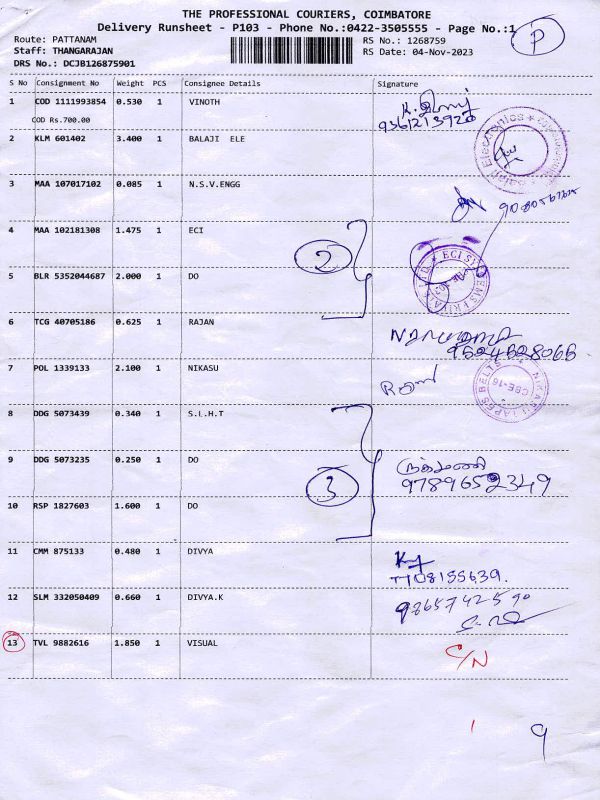 THE PROFESSIONAL COURIERS, COIMBATORE
Delivery Runsheet - P103 - Phone No.:0422-3505555 - Page No.:1
P
Route: PATTANAM
RS No.: 1268759
Staff: THANGARAJAN
RS Date: 04-Nov-2023
DRS No.: DCJB126875901
S No Consignment No Weight PCS Consignee Details Signature
1 COD 1111993854 0.530 1 VINOTH
COD Rs.700.00
9361213920
2 KLM 601402 3.400 1 BALAJI ELE
3 MAA 107017102 0.085 1 N.S.V.ENGG
4 MAA 102181308 1.475 1 ECI
2
5 BLR 5352044687 2.000 1 DO
6 TCG 40705186 0.625 1 RAJAN
9524628066
7 POL 1339133 2.100 1 NIKASU
8 DDG 5073439 0.340 1 S.L.H.T
9 DDG 5073235 0.250 1 DO
3
ருக்மணி
9789652349
10 RSP 1827603 1.600 1 DO
11 CMM 875133 0.480 1 DIVYA
12 SLM 332050409 0.660 1 DIVYA.K
9865742590
13 TVL 9882616 1.850 1 VISUAL
S/N
9